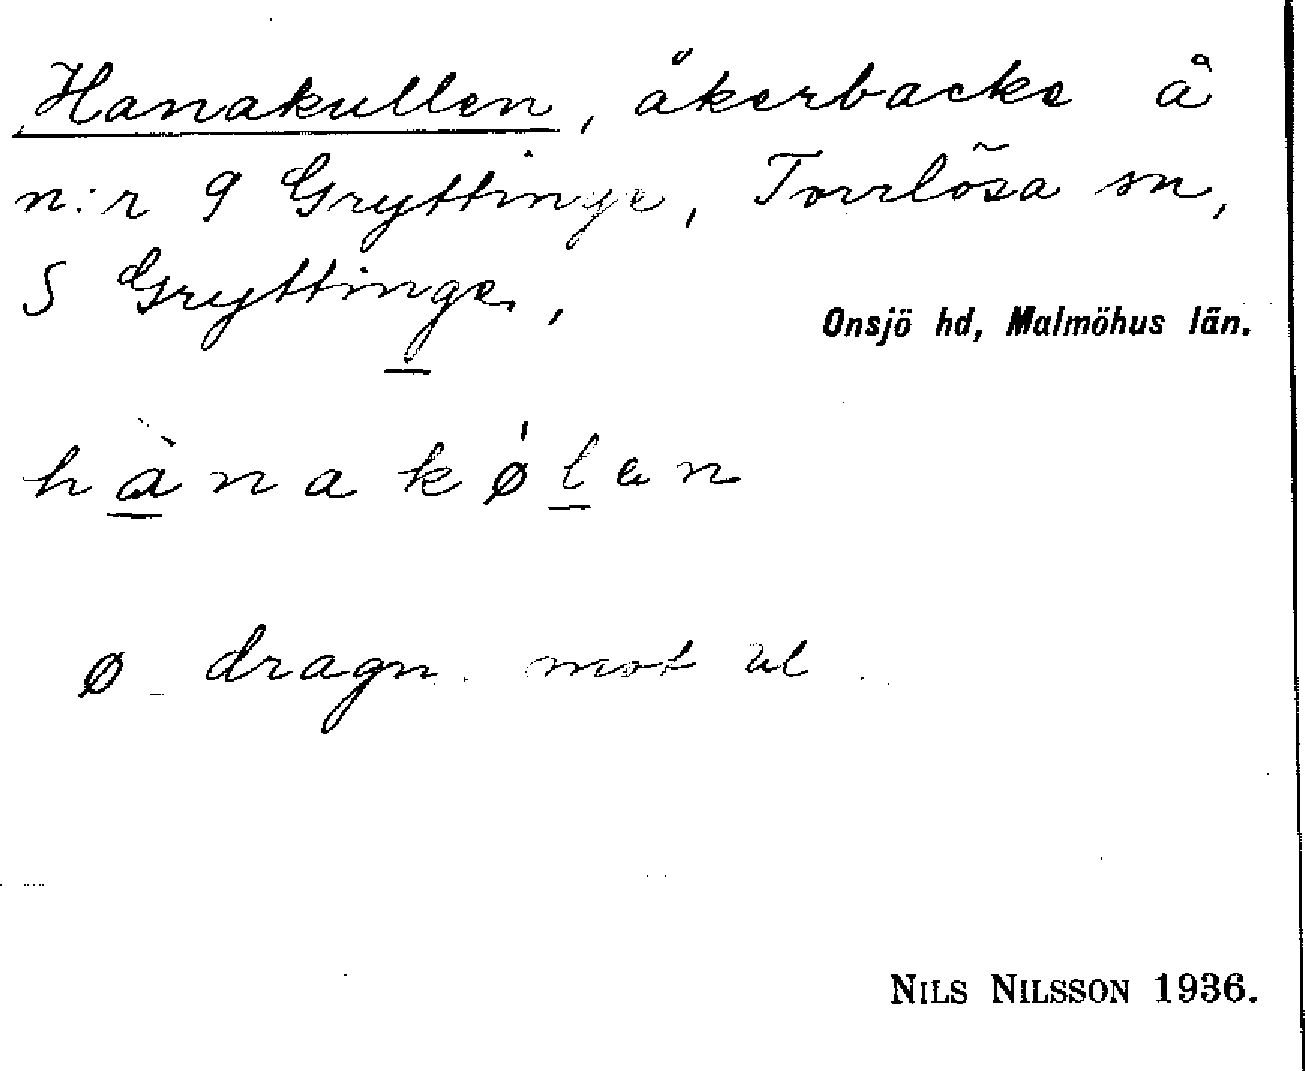 Hanakullen, åkerbacke å
n:r 9 Gryttinge, Torrlösa sn,
S Gryttinge,
Onsjö hd, Malmöhus län.
hànakǿlen
ø dragn. mot ul
NILS NILSSON 1936.